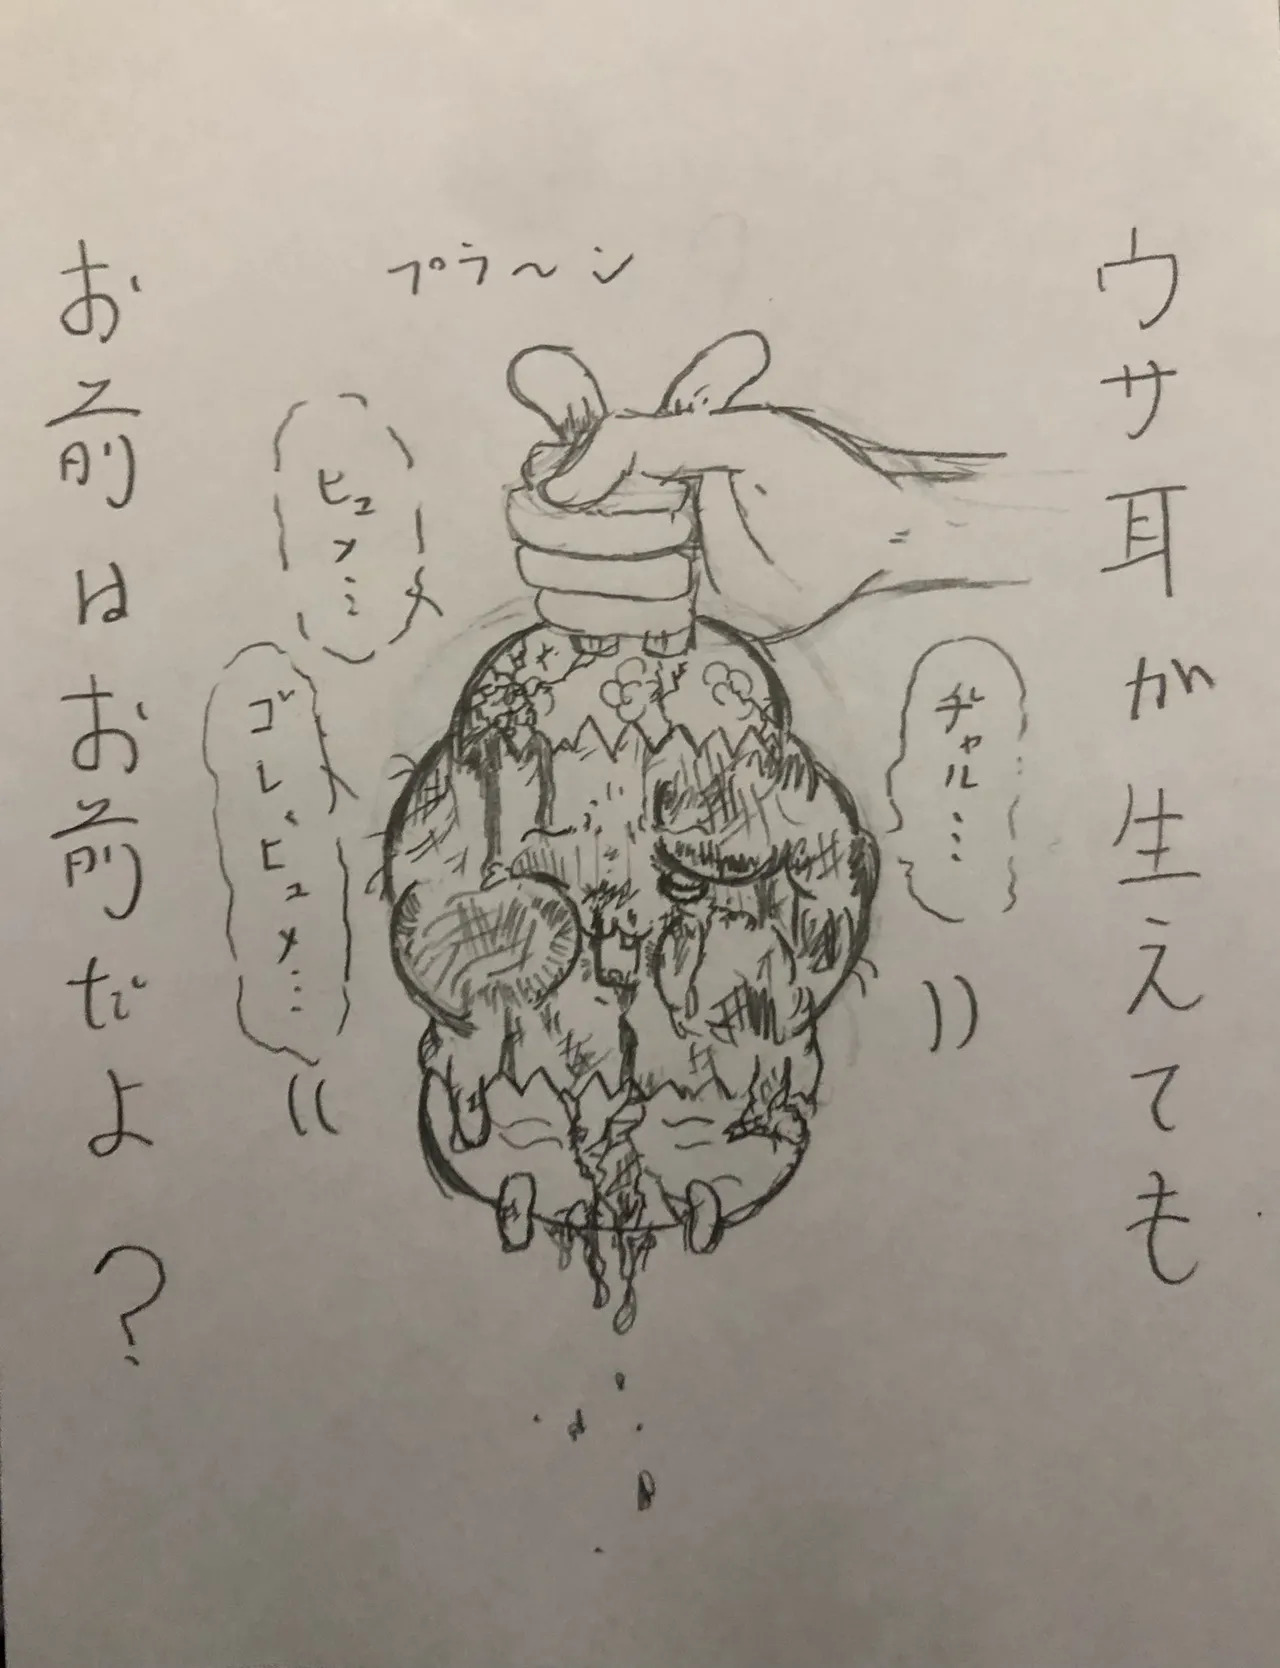 ウサ耳が生えても
プラ〜ン
ヂャル……
ヒュメ…
ゴレ、ヒュメ…
お前はお前だよ？